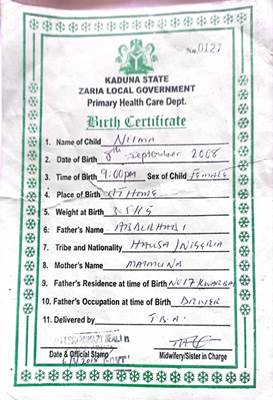 No. 0121
KADUNA STATE
ZARIA LOCAL GOVERNMENT
Primary Health Care Dept.
Birth Certificate
1. Name of Child Nilma
2. Date of Birth 8th September 2008
3. Time of Birth 9:00pm Sex of Child Female
4. Place of Birth At Home
5. Weight at Birth
6. Father's Name
7. Tribe and Nationality Hausa/Nigeria
8. Mother's Name Maimuna
9. Father's Residence at time of Birth NO17
10. Father's Occupation at time of Birth DRIVER
11. Delivered by T.B.A.
Date & Official Stamp Midwifery/Sister in Charge